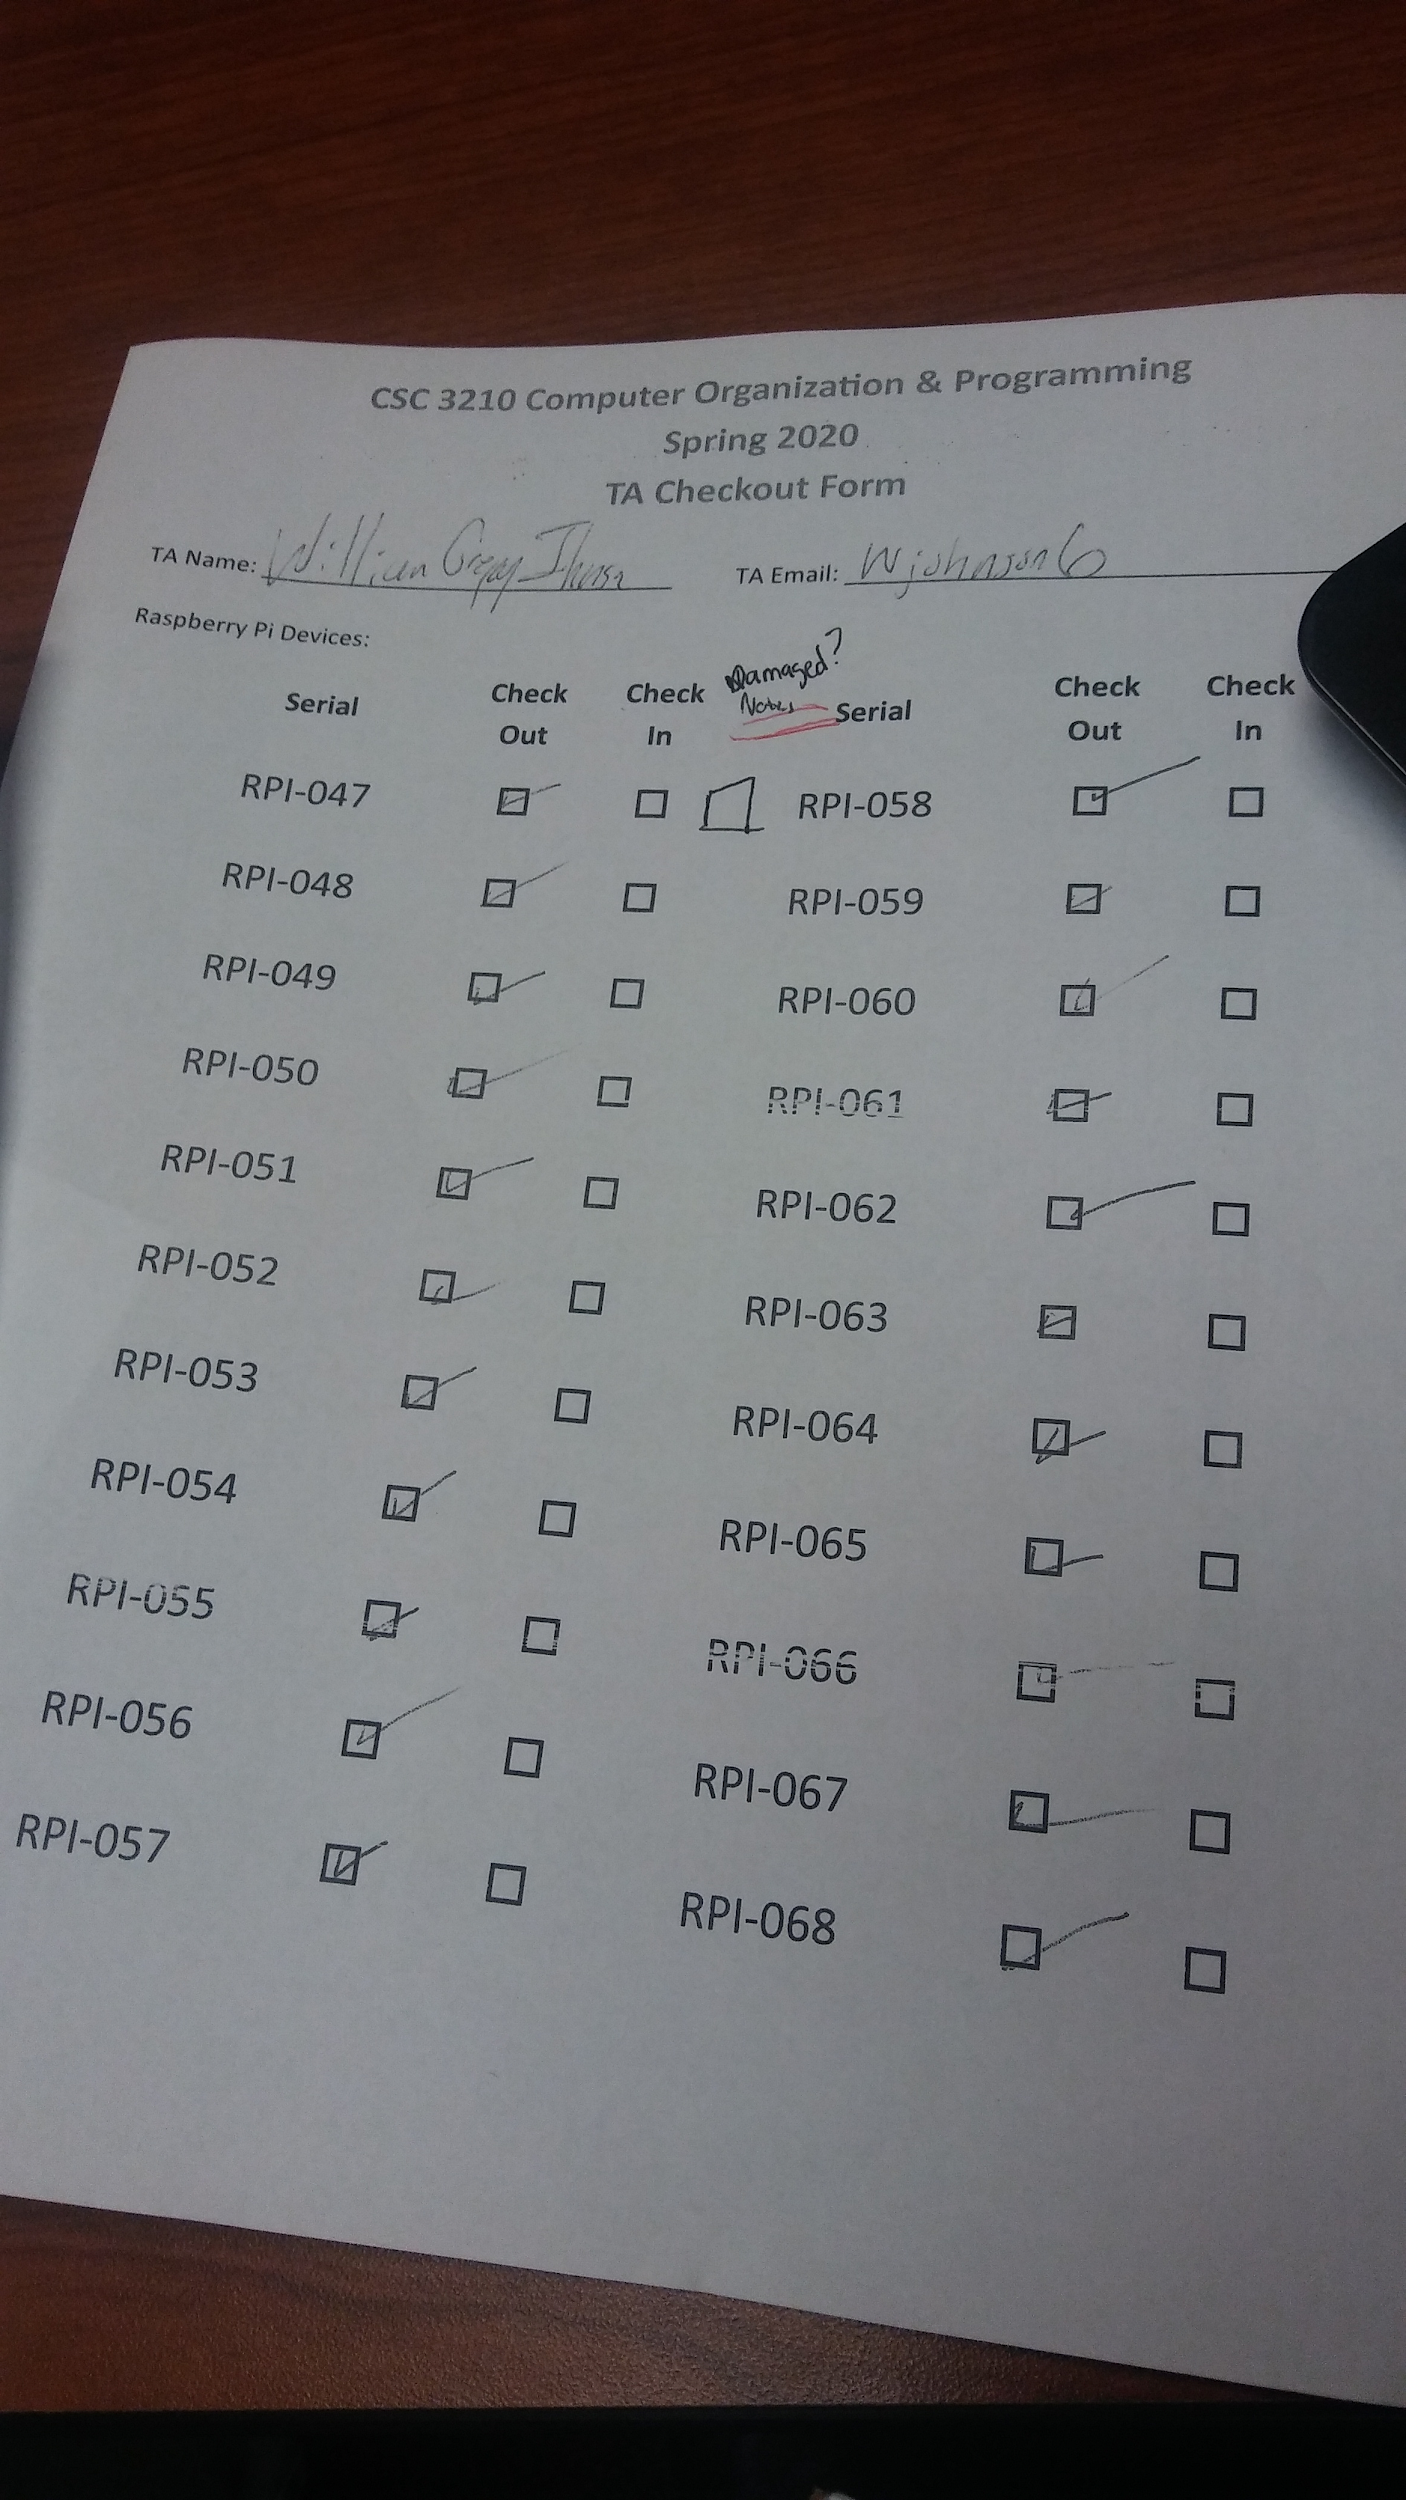 CSC 3210 Computer Organization & Programming
Spring 2020
TA Checkout Form
TA Name: William Gregory Johnson TA Email: wjohnson6
Raspberry Pi Devices:
Damaged?
Notes
Serial Check Out Check In Serial Check Out Check In
RPI-047 RPI-058
RPI-048 RPI-059
RPI-049 RPI-060
RPI-050 RPI-061
RPI-051 RPI-062
RPI-052 RPI-063
RPI-053 RPI-064
RPI-054 RPI-065
RPI-055 RPI-066
RPI-056 RPI-067
RPI-057 RPI-068